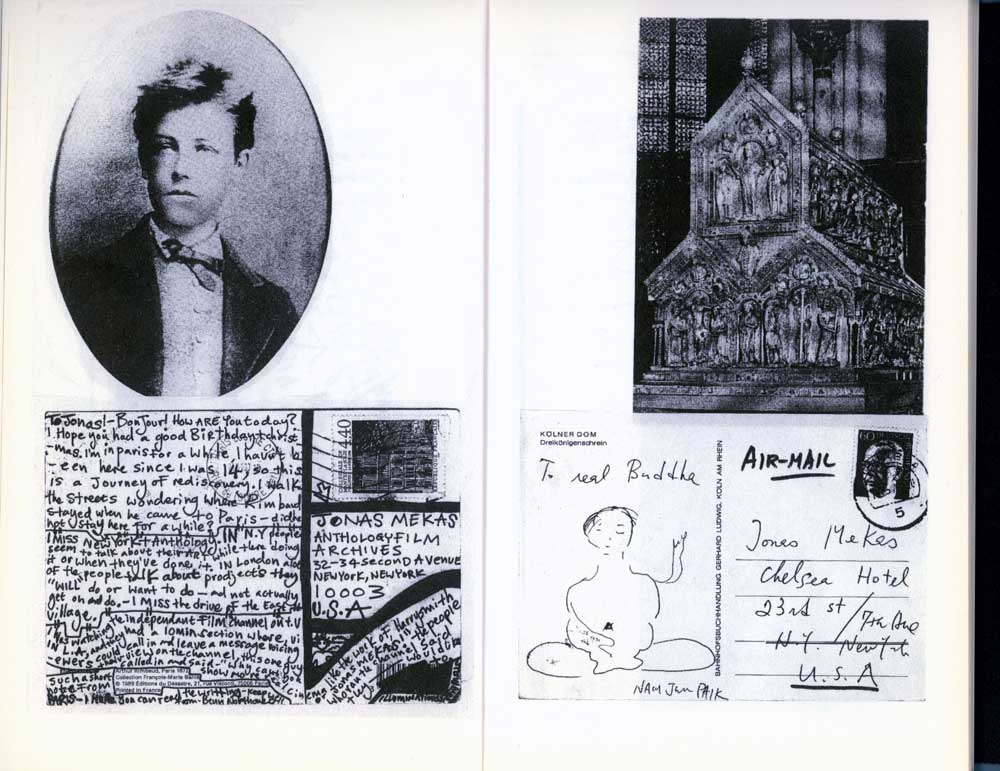 To Jonas!-BonJour! How ARE You today?
I Hope you had a good Birthday+christ
-mas. I'm in paris for a while, I havn't b
-een here since I was 14, so this
is a Journey of rediscovery. I walk
the Streets wondering where Rimbaud
Stayed when he came to Paris-did he
not stay here for a while?
I MISS NEW YORK + Anthology. IN N.Y people
seem to talk about their Art while there doing
it or when they've done it. IN London a lot
OF the people talk about prodjects they
"WILL" do or want to do - and not actually
get on and do. - I MISS the drive of the East
village.
the Independant Film channel on t.v
IN L.A, and they had a 10 min section where, vi
ewers could call in and leave a message voicing
their view on the channel, this one guy
called in and said - "Why
such a short
note From
Arthur Rimbaud, Paris 1871
Collection François-Marie Banier
© 1989 Éditions du Désastre, 21, rue Visconti
Printed in France
you can read the writting - keep
From. Benn Northover
cinema like the work of Harry Smith
or Jonas Mekas
40
JONAS MEKAS
ANTHOLOGY FILM
ARCHIVES
32-34 SECOND AVENUE
NEW YORK, NEW YORK
10003
U.S.A
KÖLNER DOM
Dreikönigenschrein
To real Buddha
NAM JUN PAIK
BAHNHOFSBUCHHANDLUNG GERHARD LUDWIG, KÖLN AM RHEIN
AIR-MAIL
60
5
Jonas Mekas
Chelsea Hotel
23rd st / 7th Ave
N.Y. New York
U.S.A